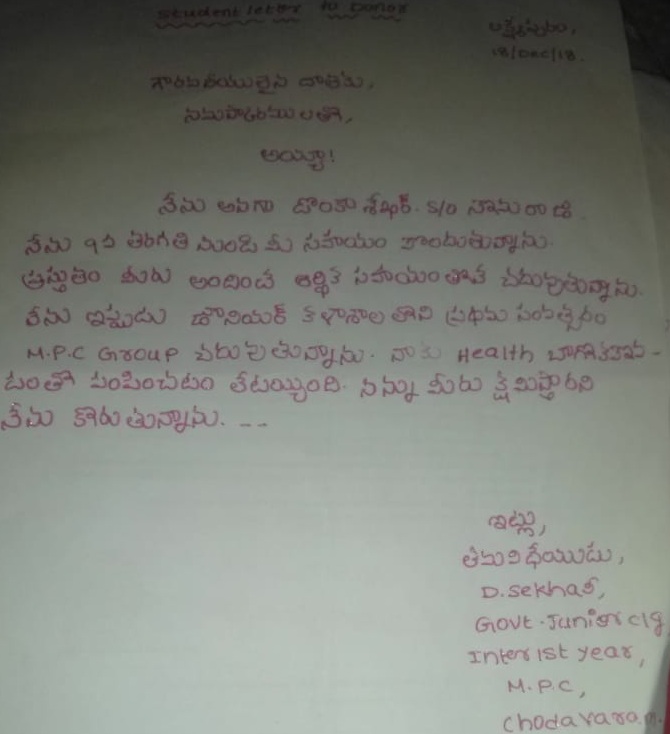 Student letter to Donor
లక్ష్మీపురం,
18/Dec/18.
గౌరవనీయులైన దాతకు,
నమస్కారములతో,
అయ్యా!
నేను అనగా దొండా శేఖర్. S/o రాణి
నేను 9వ తరగతి నుండి మీ సహాయం పొందుతున్నాను.
ప్రస్తుతం మీరు అందించే ఆర్థిక సహాయంతోనే చదువుతున్నాను.
నేను ఇప్పుడు జూనియర్ కళాశాలలోని ప్రథమ సంవత్సరం
M.P.C Group చదువుతున్నాను. నాకు Health బాగోకపోవ-
టంతో పంపించటం లేటయ్యింది. నన్ను మీరు క్షమిస్తారని
నేను కోరుతున్నాను. --
ఇట్లు,
తమవిధేయుడు,
D.Sekhar,
Govt.Junior clg
Inter 1st year,
M.P.C,
Chodavaram.